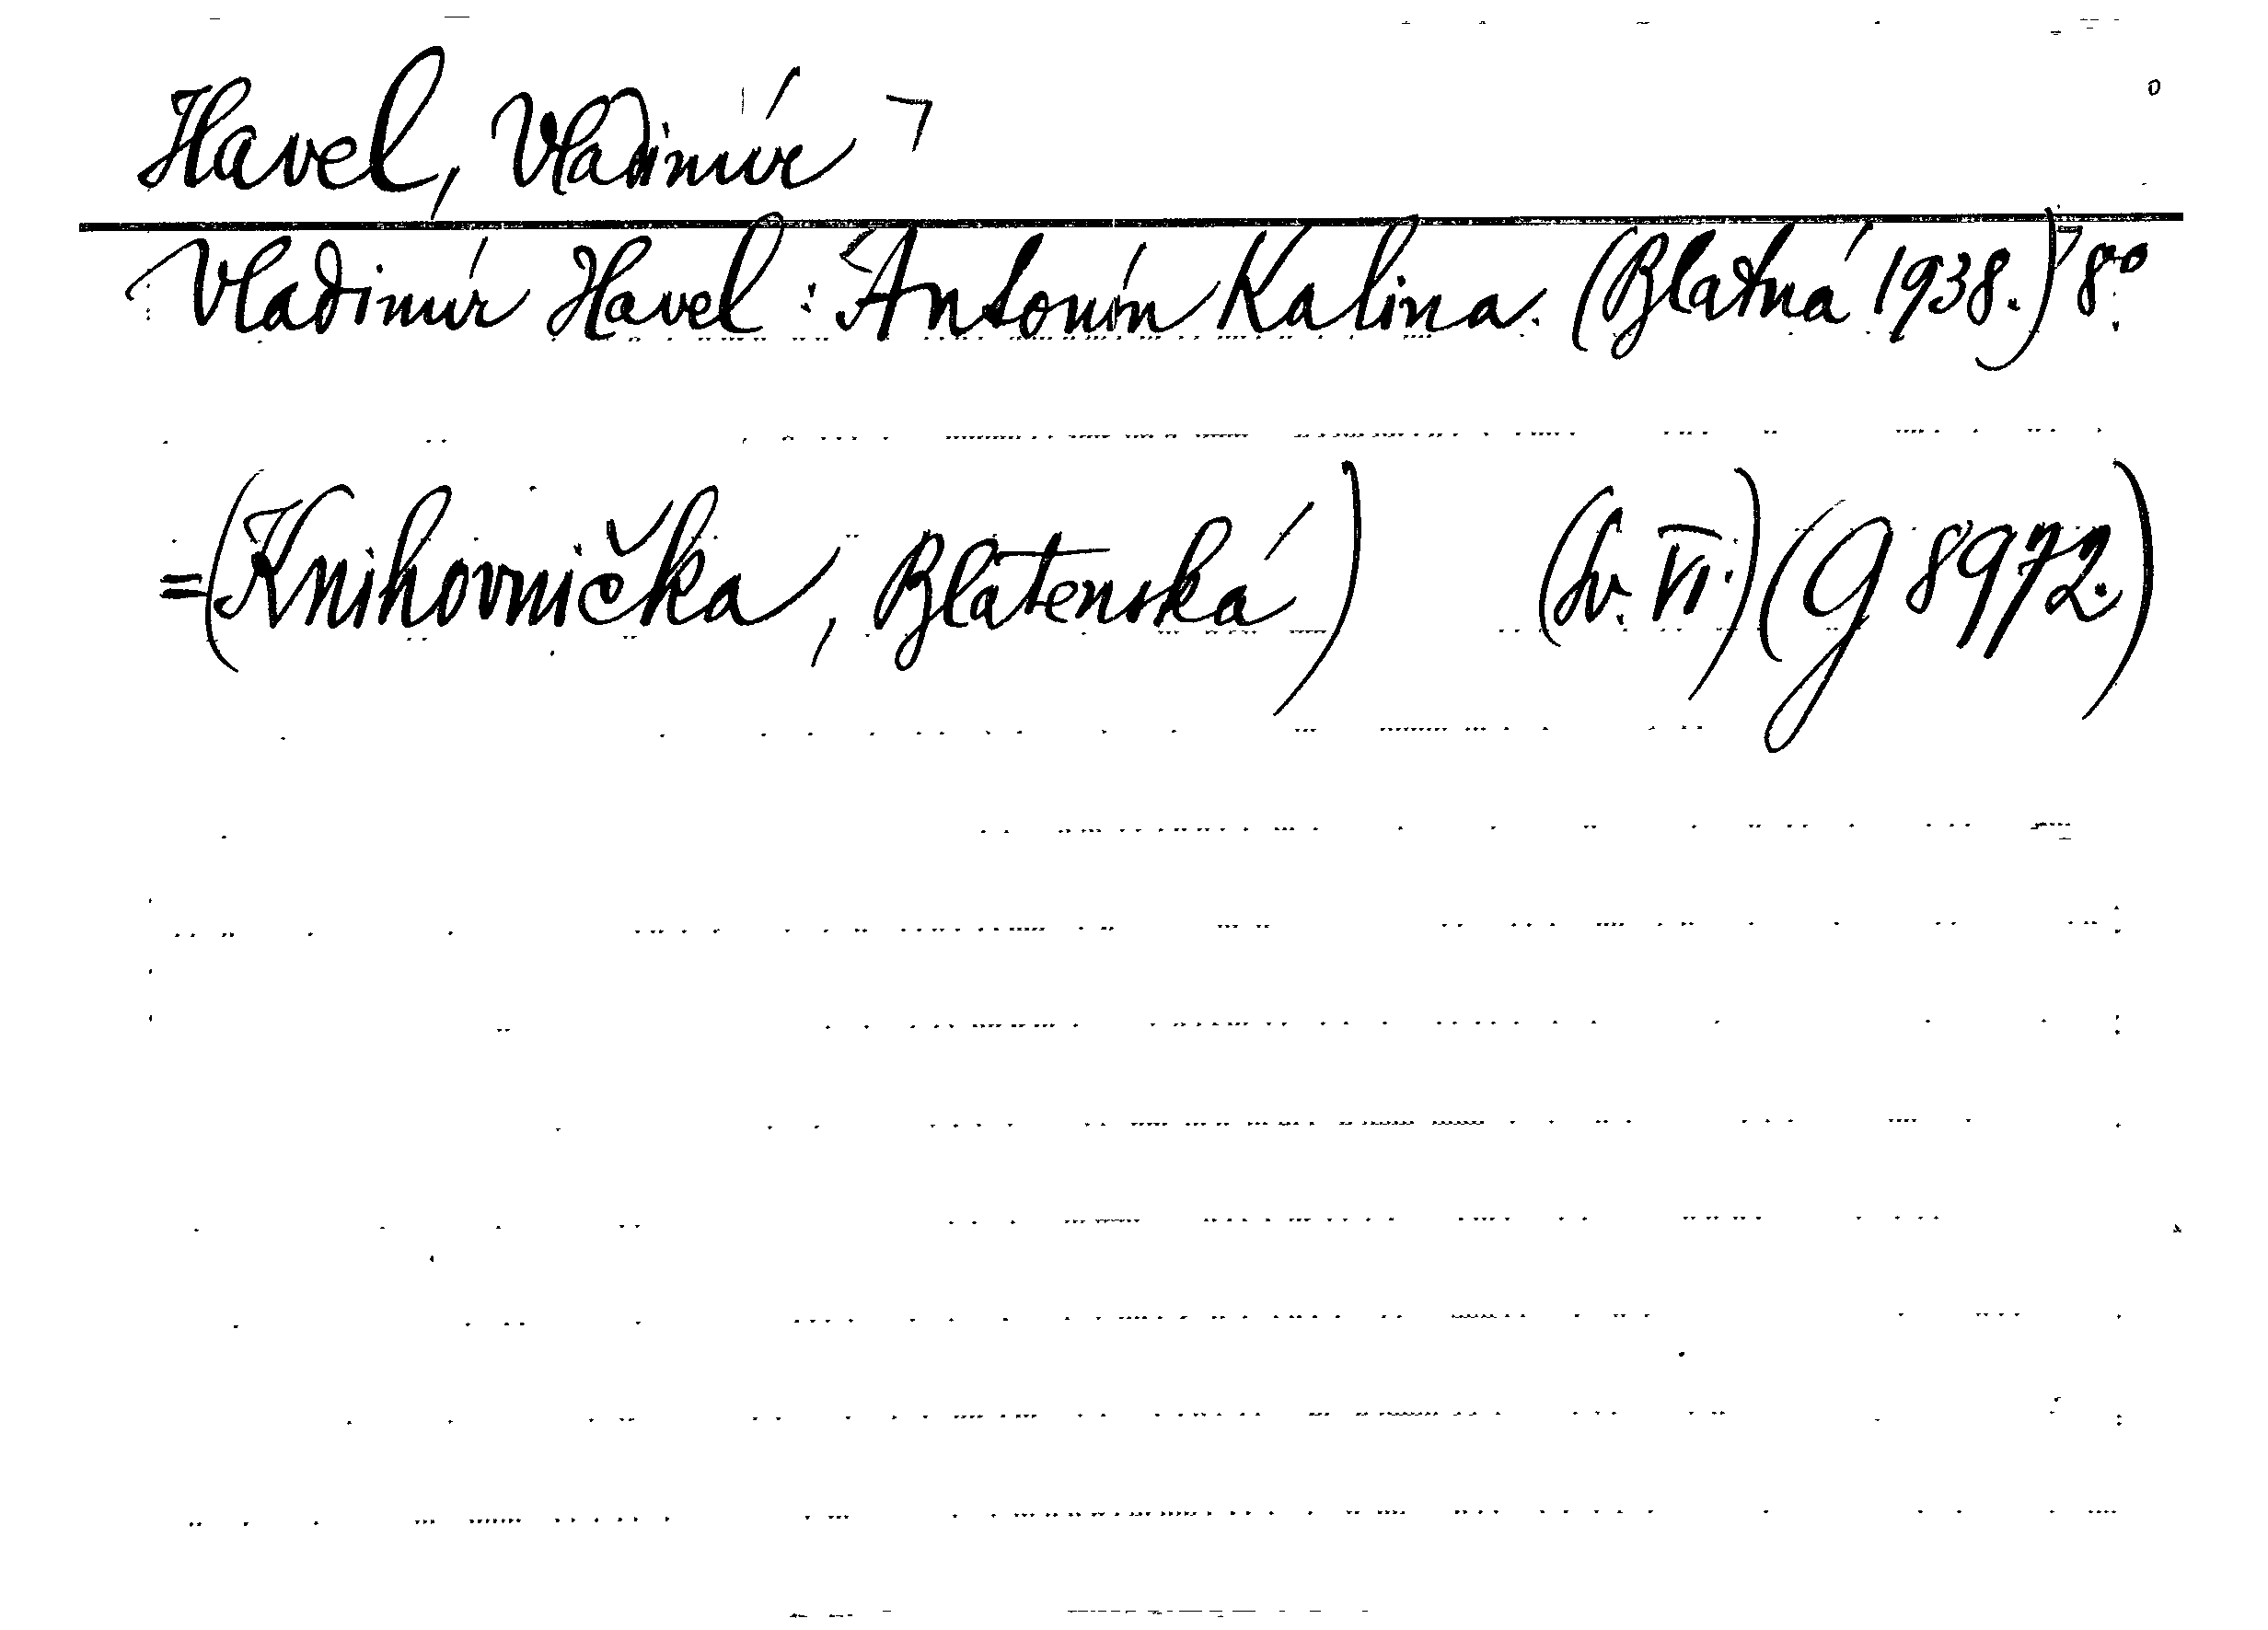 Havel, Vladimír
Vladimír Havel: Antonín Kalina. (Blatná 1938.) 8°
=(Knihovnička, Blatenská) (Sv. VI.) (G 8972.)